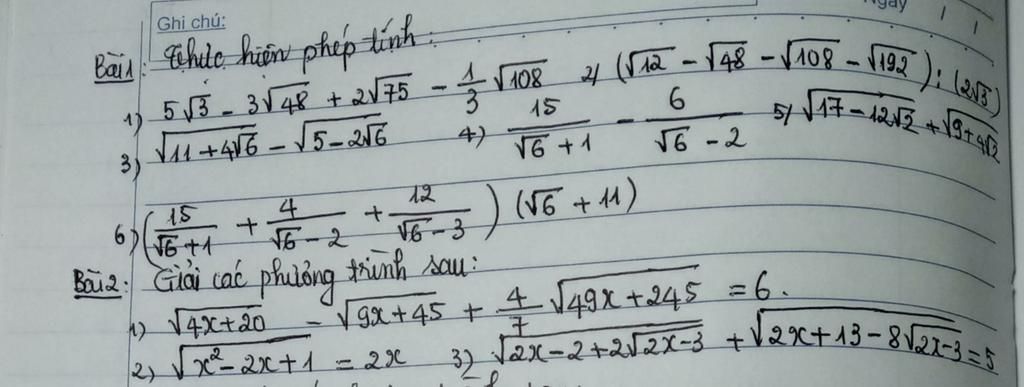 Ghi chú:
Ngày
Bài 1: Thực hiện phép tính:
1) 5√3 - 3√48 + 2√75 - 1/3 √108 2) (√12 - √48 - √108 - √192) : (2√3)
3) √(11 + 4√6) - √(5 - 2√6) 4) 15/(√6 + 1) - 6/(√6 - 2) 5) √(17 - 12√2) + √(9 + 4√2)
6) (15/(√6 + 1) + 4/(√6 - 2) + 12/(√6 - 3)) (√6 + 11)
Bài 2: Giải các phương trình sau:
1) √(4x + 20) - √(9x + 45) + 4/7 √(49x + 245) = 6.
2) √(x² - 2x + 1) = 2x 3) √(2x - 2 + 2√(2x - 3)) + √(2x + 13 - 8√(2x - 3)) = 5